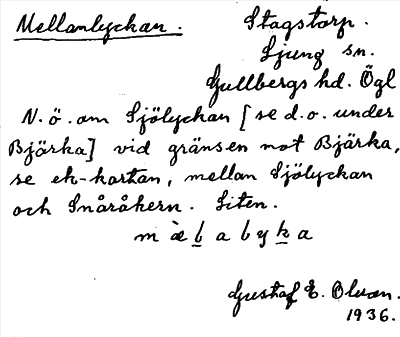 Mellanlyckan. Stagstorp.
Ljung sn.
Gullbergs hd. Ögl
N.ö. om Sjölyckan [se d.o. under
Bjärka] vid gränsen mot Bjärka,
se ek-kartan, mellan Sjölyckan
och Snåråkern. Liten.
m æ̀ l a l y k a
Gustaf E. Olsson.
1936.